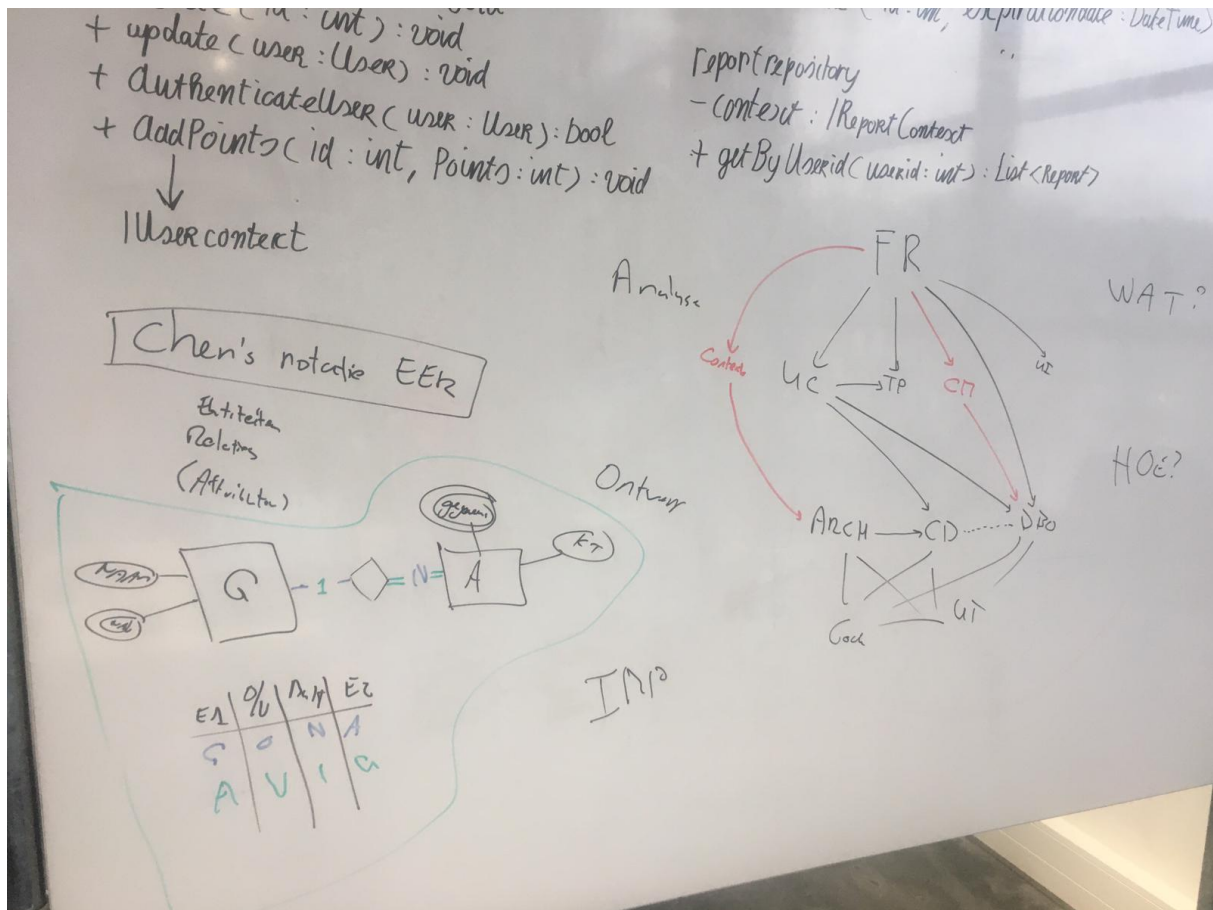 (id : int) : void
+ update (user : User) : void
+ AuthenticateUser (user : User) : bool
+ AddPoints (id : int, Points : int) : void
IUsercontext
(id : int, expirationdate : DateTime)
..
reportrepository
- context : IReportContext
+ getByUserid (userid : int) : List<Report>
Chen's notatie EER
Entiteiten
Relaties
(Attributen)
G - 1 - = N = A
E1 O/V E2
G O N A
A V 1 G
Analyse
FR
WAT?
UC TP CM UI
HOE?
Ontwerp
ARCH CD DBO
UT
IMP